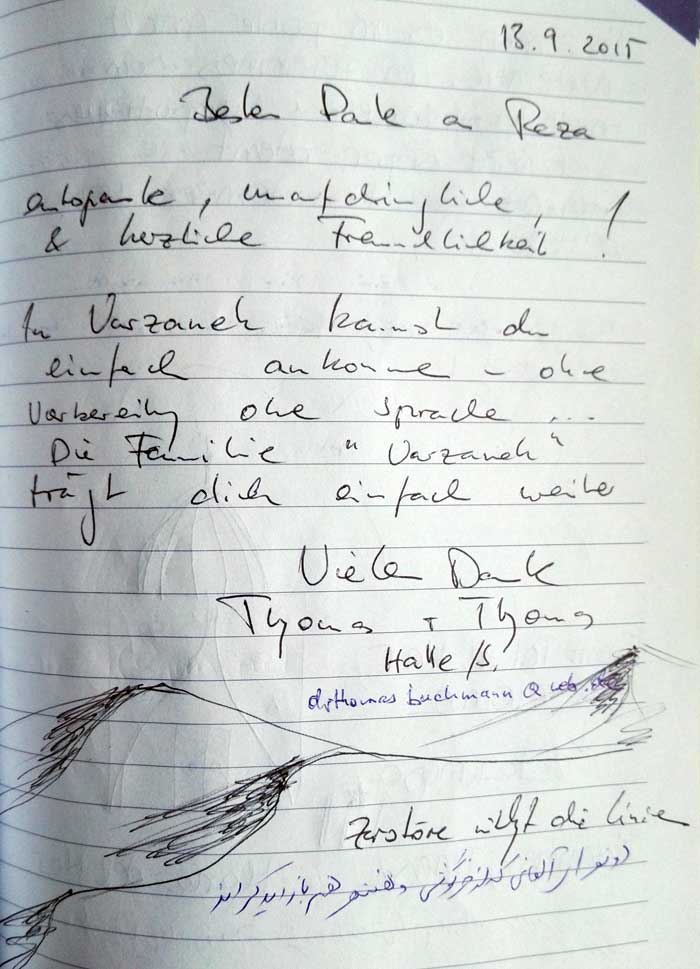 13.9.2015
Besten Dank an Reza
entspannte, unaufdringliche,
& herzliche Freundlichkeit!
In Varzaneh kannst du
einfach ankommen - ohne
Vorbereitung ohne Sprache ...
Die Familie "Varzaneh"
trägt dich einfach weiter
Vielen Dank
Thomas + Thomas
Halle/S.
drthomasbuchmann@web.de
Zerstöre nicht die Linie
دو نفر از آلمان که از هم بازدید کردند